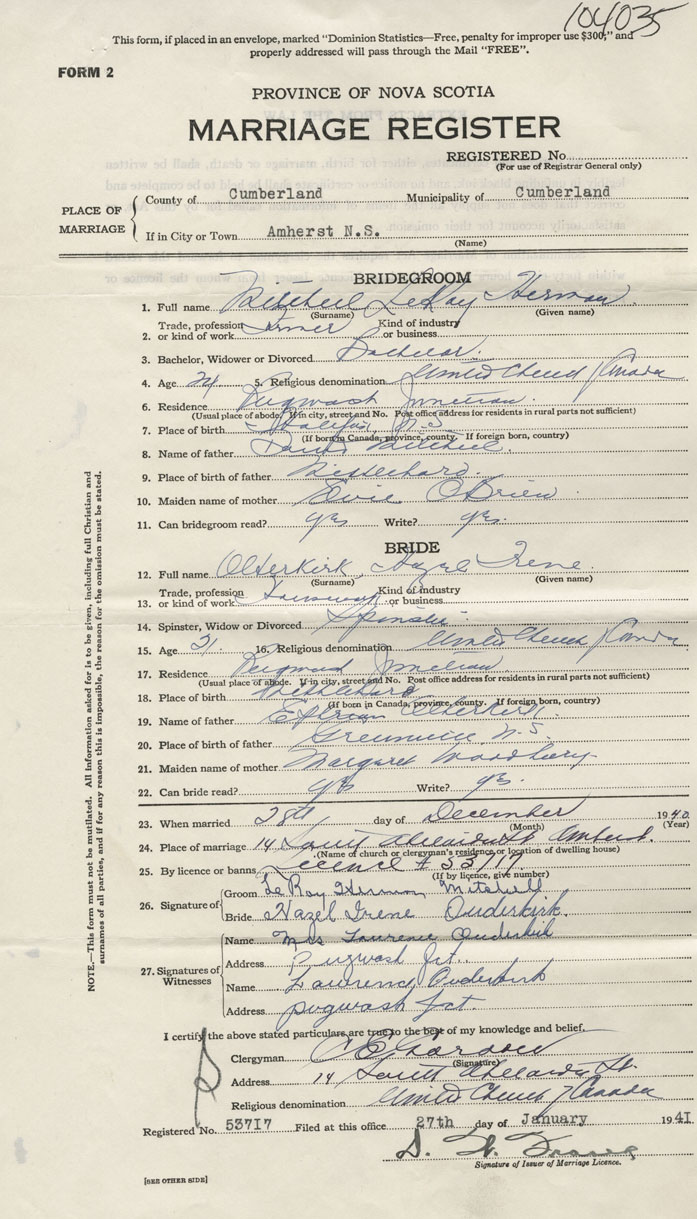 104035
This form, if placed in an envelope, marked "Dominion Statistics—Free, penalty for improper use $300," and
properly addressed will pass through the Mail "FREE".
FORM 2
PROVINCE OF NOVA SCOTIA
MARRIAGE REGISTER
REGISTERED No.
(For use of Registrar General only)
PLACE OF MARRIAGE
County of Cumberland Municipality of Cumberland
If in City or Town Amherst N.S.
(Name)
BRIDEGROOM
1. Full name Mitchell LeRoy Herman
(Surname) (Given name)
Trade, profession Kind of industry
2. or kind of work or business
3. Bachelor, Widower or Divorced Bachelor.
4. Age 24 5. Religious denomination United Church of Canada
6. Residence Pugwash Junction.
(Usual place of abode. If in city, street and No. Post office address for residents in rural parts not sufficient)
7. Place of birth Halifax, N.S
(If born in Canada, province, county. If foreign born, country)
8. Name of father Mitchell.
9. Place of birth of father
10. Maiden name of mother O'Brien
11. Can bridegroom read? yes Write? yes.
BRIDE
12. Full name Hazel Irene.
(Surname) (Given name)
Trade, profession Kind of industry
13. or kind of work or business
14. Spinster, Widow or Divorced Spinster.
15. Age 21. 16. Religious denomination United Church of Canada
17. Residence Pugwash Junction
(Usual place of abode. If in city, street and No. Post office address for residents in rural parts not sufficient)
18. Place of birth
(If born in Canada, province, county. If foreign born, country)
19. Name of father
20. Place of birth of father Greenville N.S.
21. Maiden name of mother Margaret
22. Can bride read? yes Write? yes.
23. When married 28th day of December 1940
(Month) (Year)
24. Place of marriage 14 South Adelaide St Amherst.
(Name of church or clergyman's residence, or location of dwelling house)
25. By licence or banns Licence # 53717
(If by licence, give number)
26. Signature of
Groom LeRoy Herman Mitchell
Bride Hazel Irene Ouderkirk.
27. Signatures of Witnesses
Name Mrs Laurence Ouderkirk
Address Pugwash Jct.
Name Laurence Ouderkirk
Address pugwash Jct.
I certify the above stated particulars are true to the best of my knowledge and belief.
Clergyman
(Signature)
Address 14 South Adelaide St.
Religious denomination United Church of Canada
Registered No. 53717 Filed at this office 27th day of January 1941
Signature of Issuer of Marriage Licence.
[SEE OTHER SIDE]
NOTE.—This form must not be mutilated. All information asked for is to be given, including full Christian and
surnames of all parties, and if for any reason this is impossible, the reason for the omission must be stated.